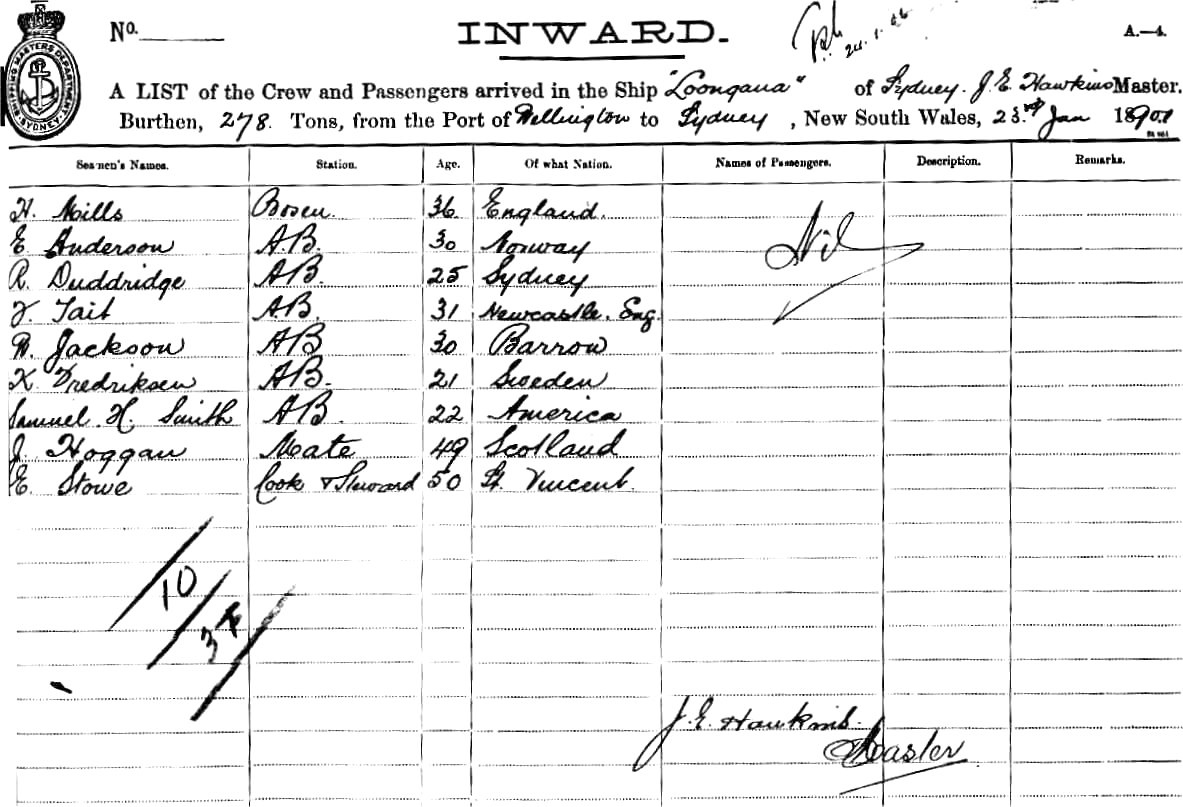 No.
INWARD.
24.1.06
A.—4.
SHIPPING MASTERS DEPARTMENT SYDNEY
A LIST of the Crew and Passengers arrived in the Ship "Loongana" of Sydney. J. E. Hawkins Master.
Burthen, 278. Tons, from the Port of Wellington to Sydney, New South Wales, 23rd Jan 190
Seamen's Names. Station. Age. Of what Nation. Names of Passengers. Description. Remarks.
H. Mills Bosen. 36 England. Nil
E. Anderson A.B. 30 Norway
R. Duddridge AB. 25 Sydney
F. Tait AB. 31 Newcastle. Eng.
W. Jackson AB 30 Barrow
K. Fredriksen AB. 21 Sweden
Samuel. H. Smith AB. 22 America
J. Hoggan Mate 49 Scotland
E. Stowe Cook & Steward 50 St. Vincent.
10
J. E. Hawkins.
Master